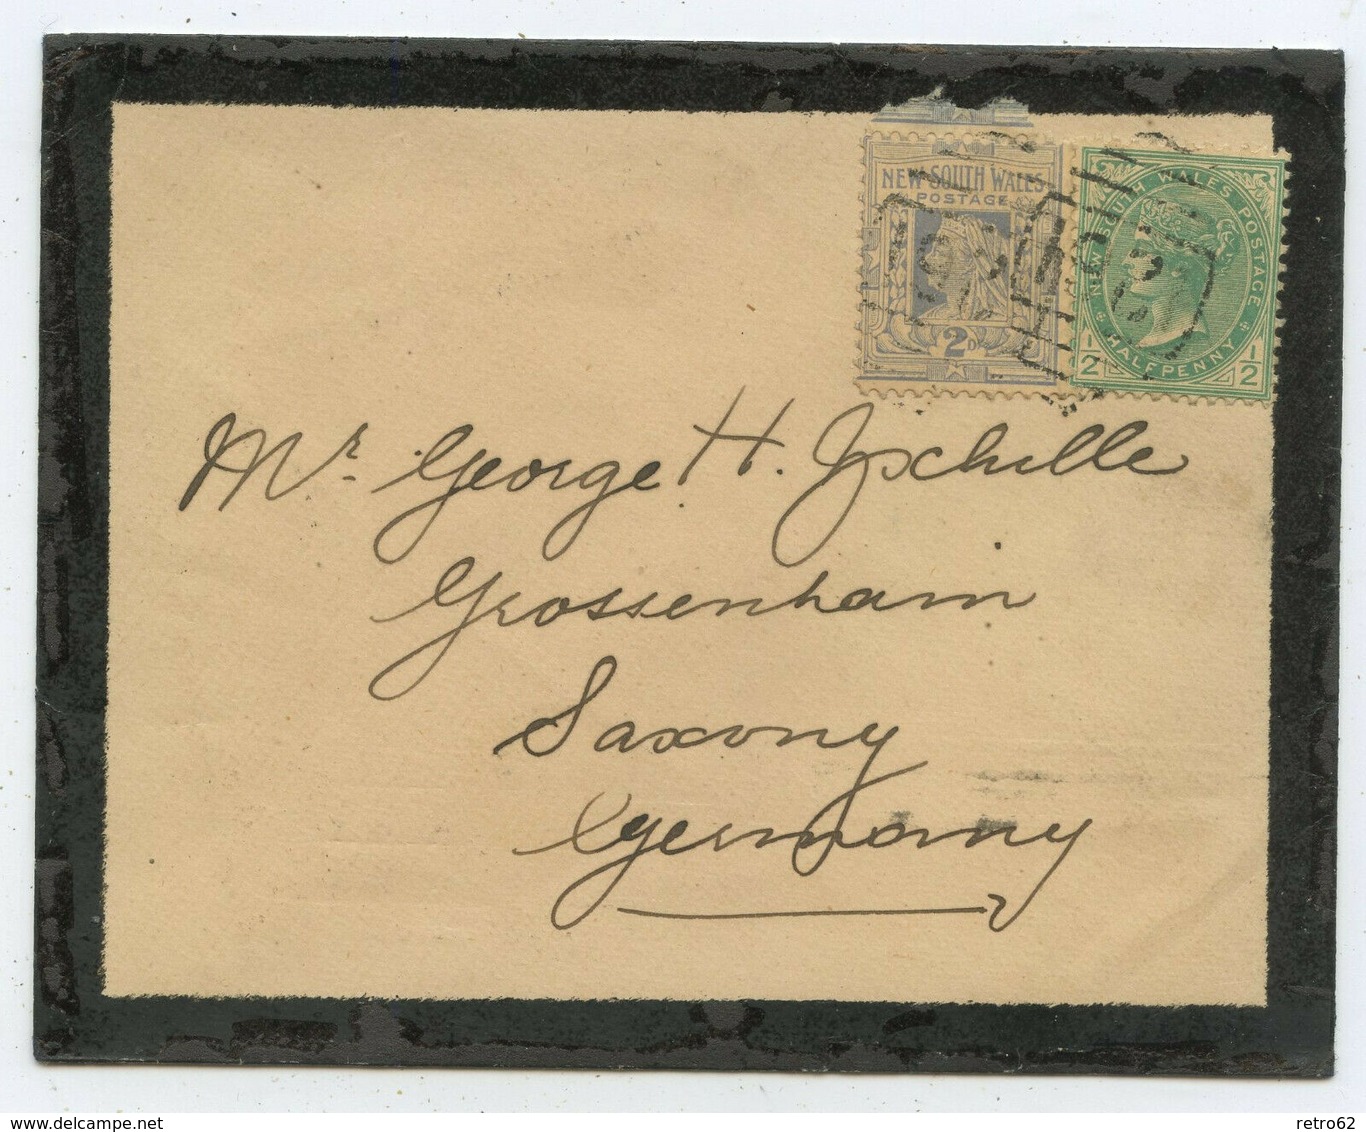 NEW SOUTH WALES
POSTAGE
2D
NEW SOUTH WALES POSTAGE
HALFPENNY
1/2 1/2
Mr. George H. Zschille
Grossenhain
Saxony
Germany
www.delcampe.net
retro62